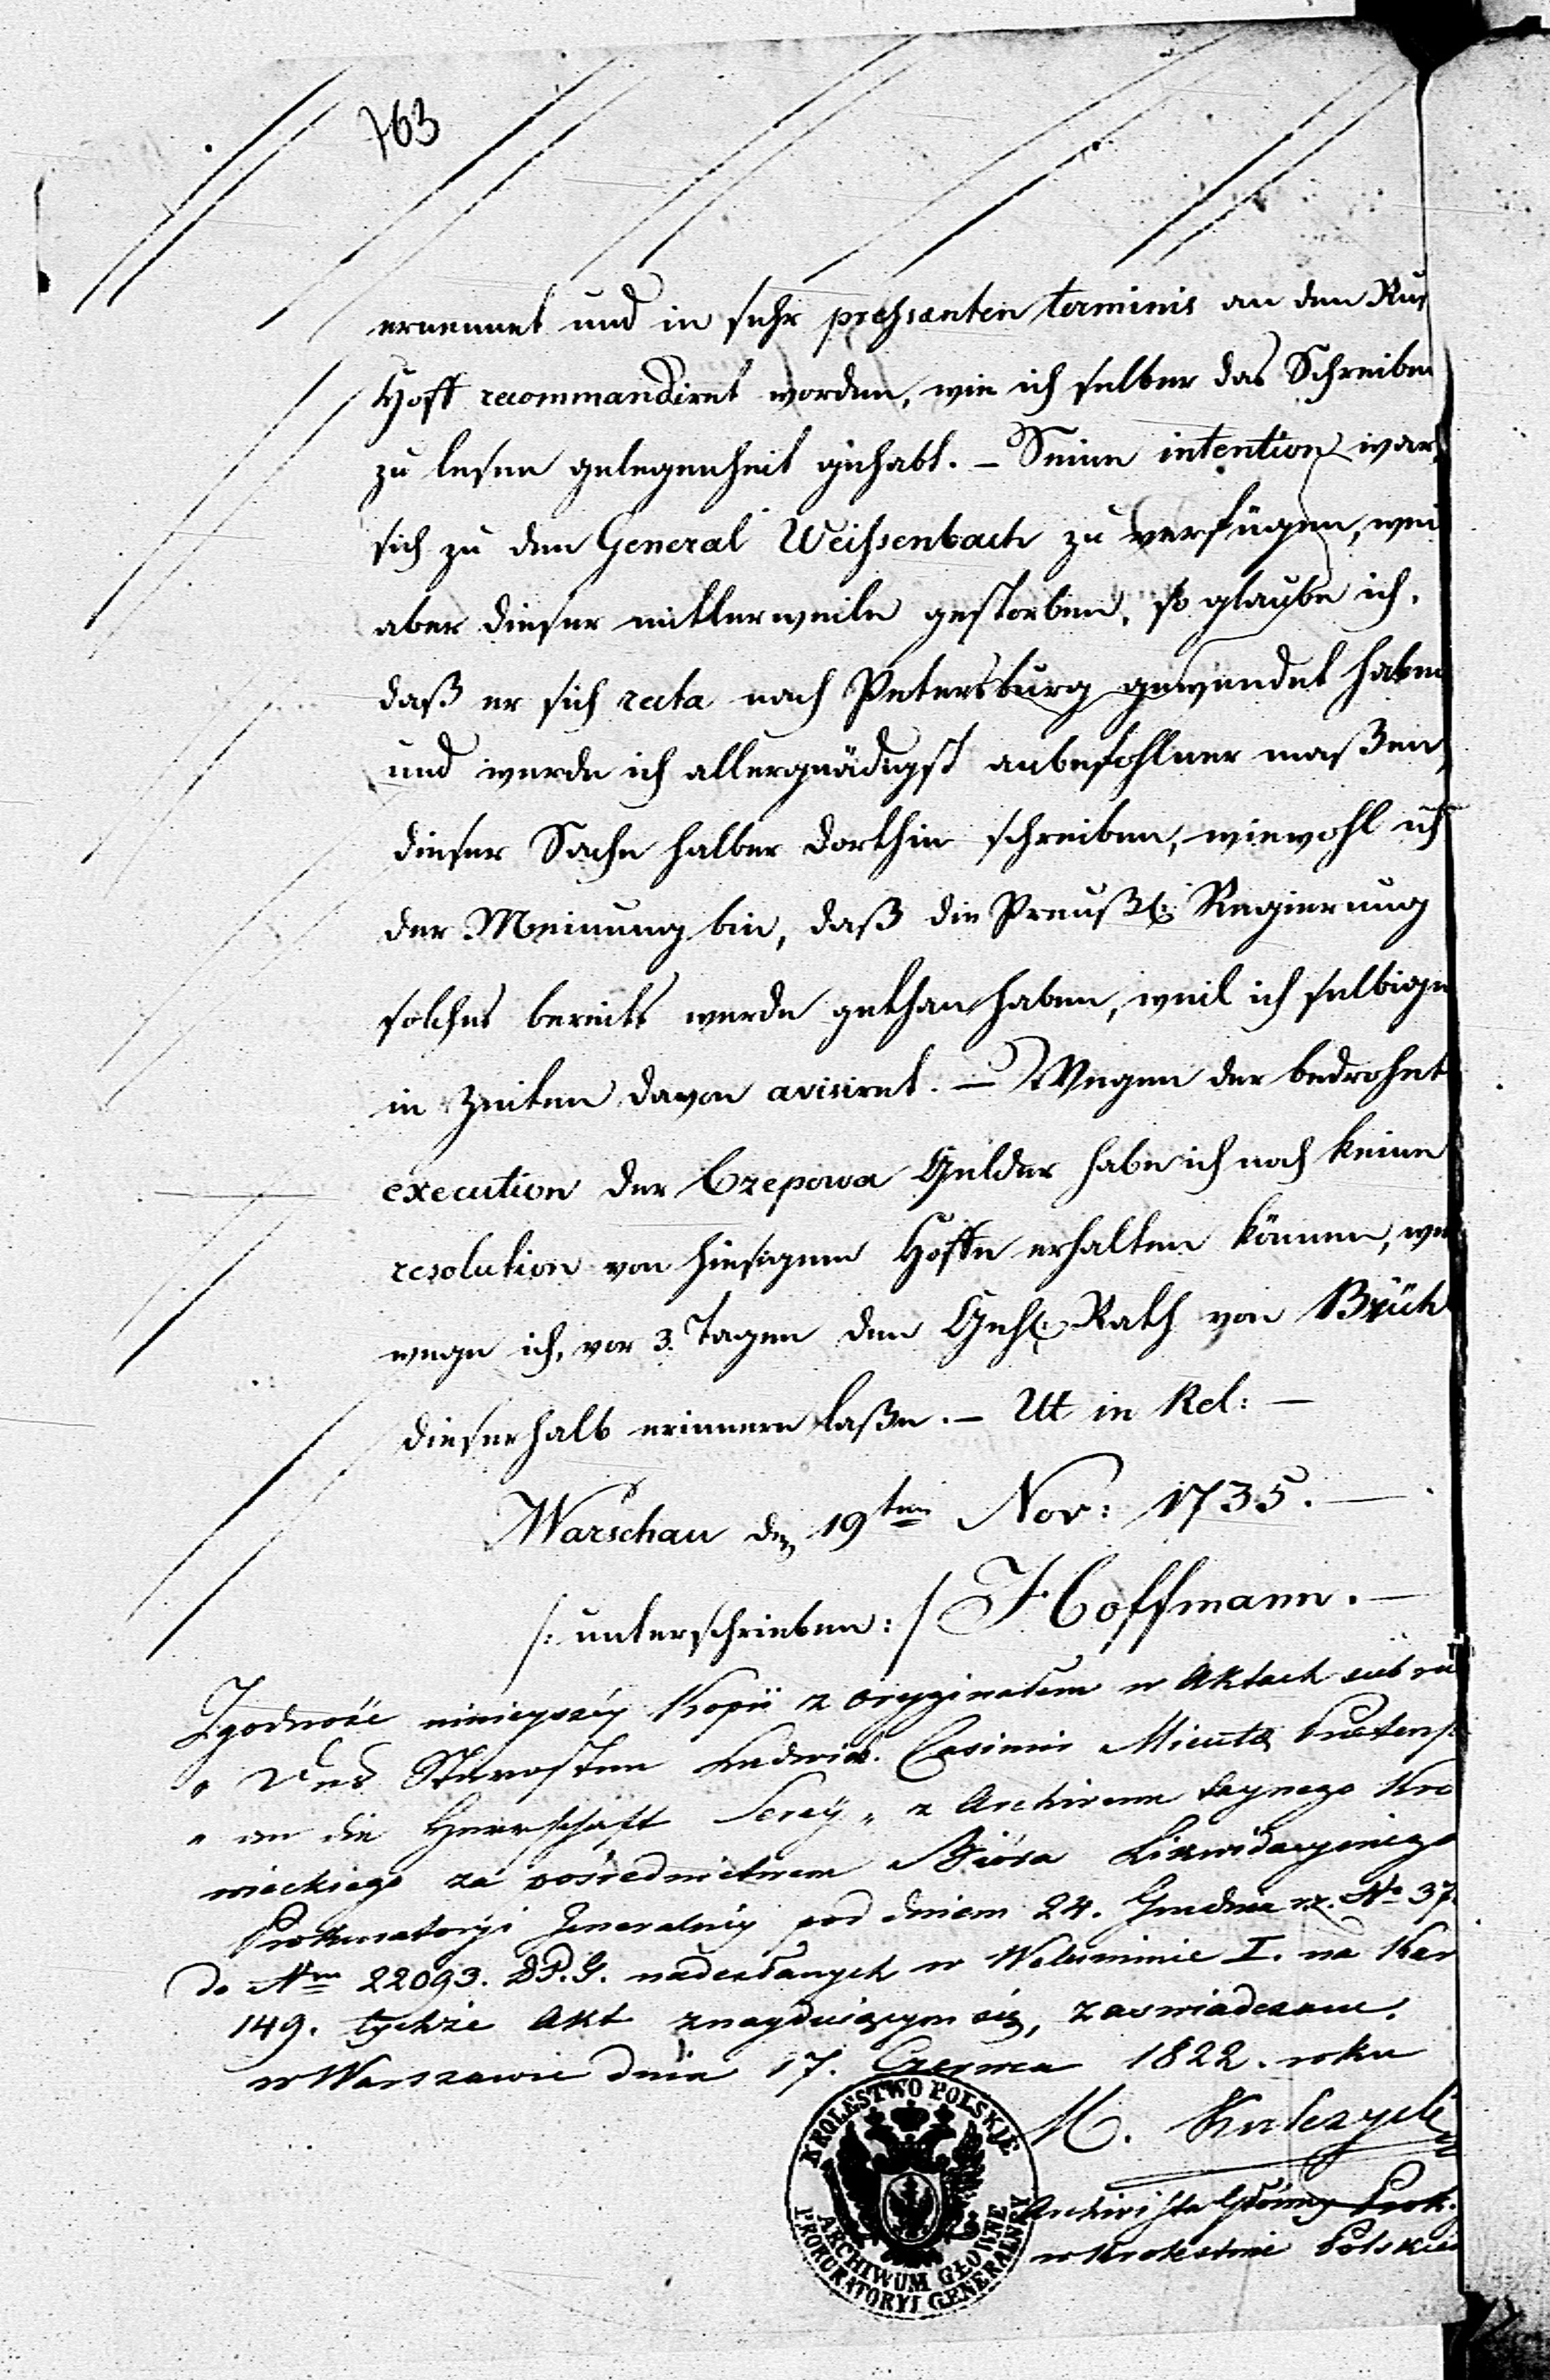 763
ernennet und in sehr pressanten terminis an den Rus
Hoff recommandiret worden, wie ich selber das Schreiben
zu lesen gelegenheit gehabt. – Seine intention war,
sich zu dem General Weissenbach zu verfügen, weil
aber dieser mittlerweile gestorben, so glaube ich,
daß er sich recta nach Petersburg gewendet haben
und werde ich allergnädigst anbefohlner maßen,
dieser Sache halber dorthin schreiben, wiewohl ich
der Meinung bin, daß die Preußl: Regierung
solches bereits werde gethan haben, weil ich selbige
in Zeiten davon avisiret. – Wegen der bedrohet
execution der Czepowa Gelder habe ich noch keine
resolution von hiesigem Hoffe erhalten können, wes
wegen ich, vor 3. Tagen den Geh: Rath von Brühl
dieserhalb erinnern laßen. – Ut in Rel: –
Warschau den 19ten Nov: 1735. –
/: unterschrieben: / Hoffmann. –
Zgodność ninieyszéy Kopii z oryginałem w Aktach sub ru
„ Des Starosten Ludwig Casimir Micuta Praetens
„ an die Herrschaft Serey „ z Archiwum taynego Kro
wieckiego za pośrednictwem Bióra Likwidacyinego
Prokuratoryi Jeneralney pod dniem 24. Grudnia r.z. No 37
do Nru 22093. D.P.G. nadesłanych w Woluminie I. na Kar
149. tychże Akt znayduiącym się, zaswiadczam.
w Warszawie dnia 17. Czerwca 1822. roku
M. Kulczycki
Archivista Główny Prok.
w Krolestwie Polskiem
KROLESTWO POLSKIE
ARCHIWUM GŁOWNE
PROKURATORYI GENERALNEY